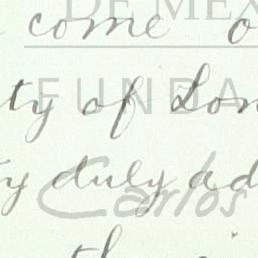 DE MEX
come o
ty of Lon
FUNDA
ty duly ad
Carlos